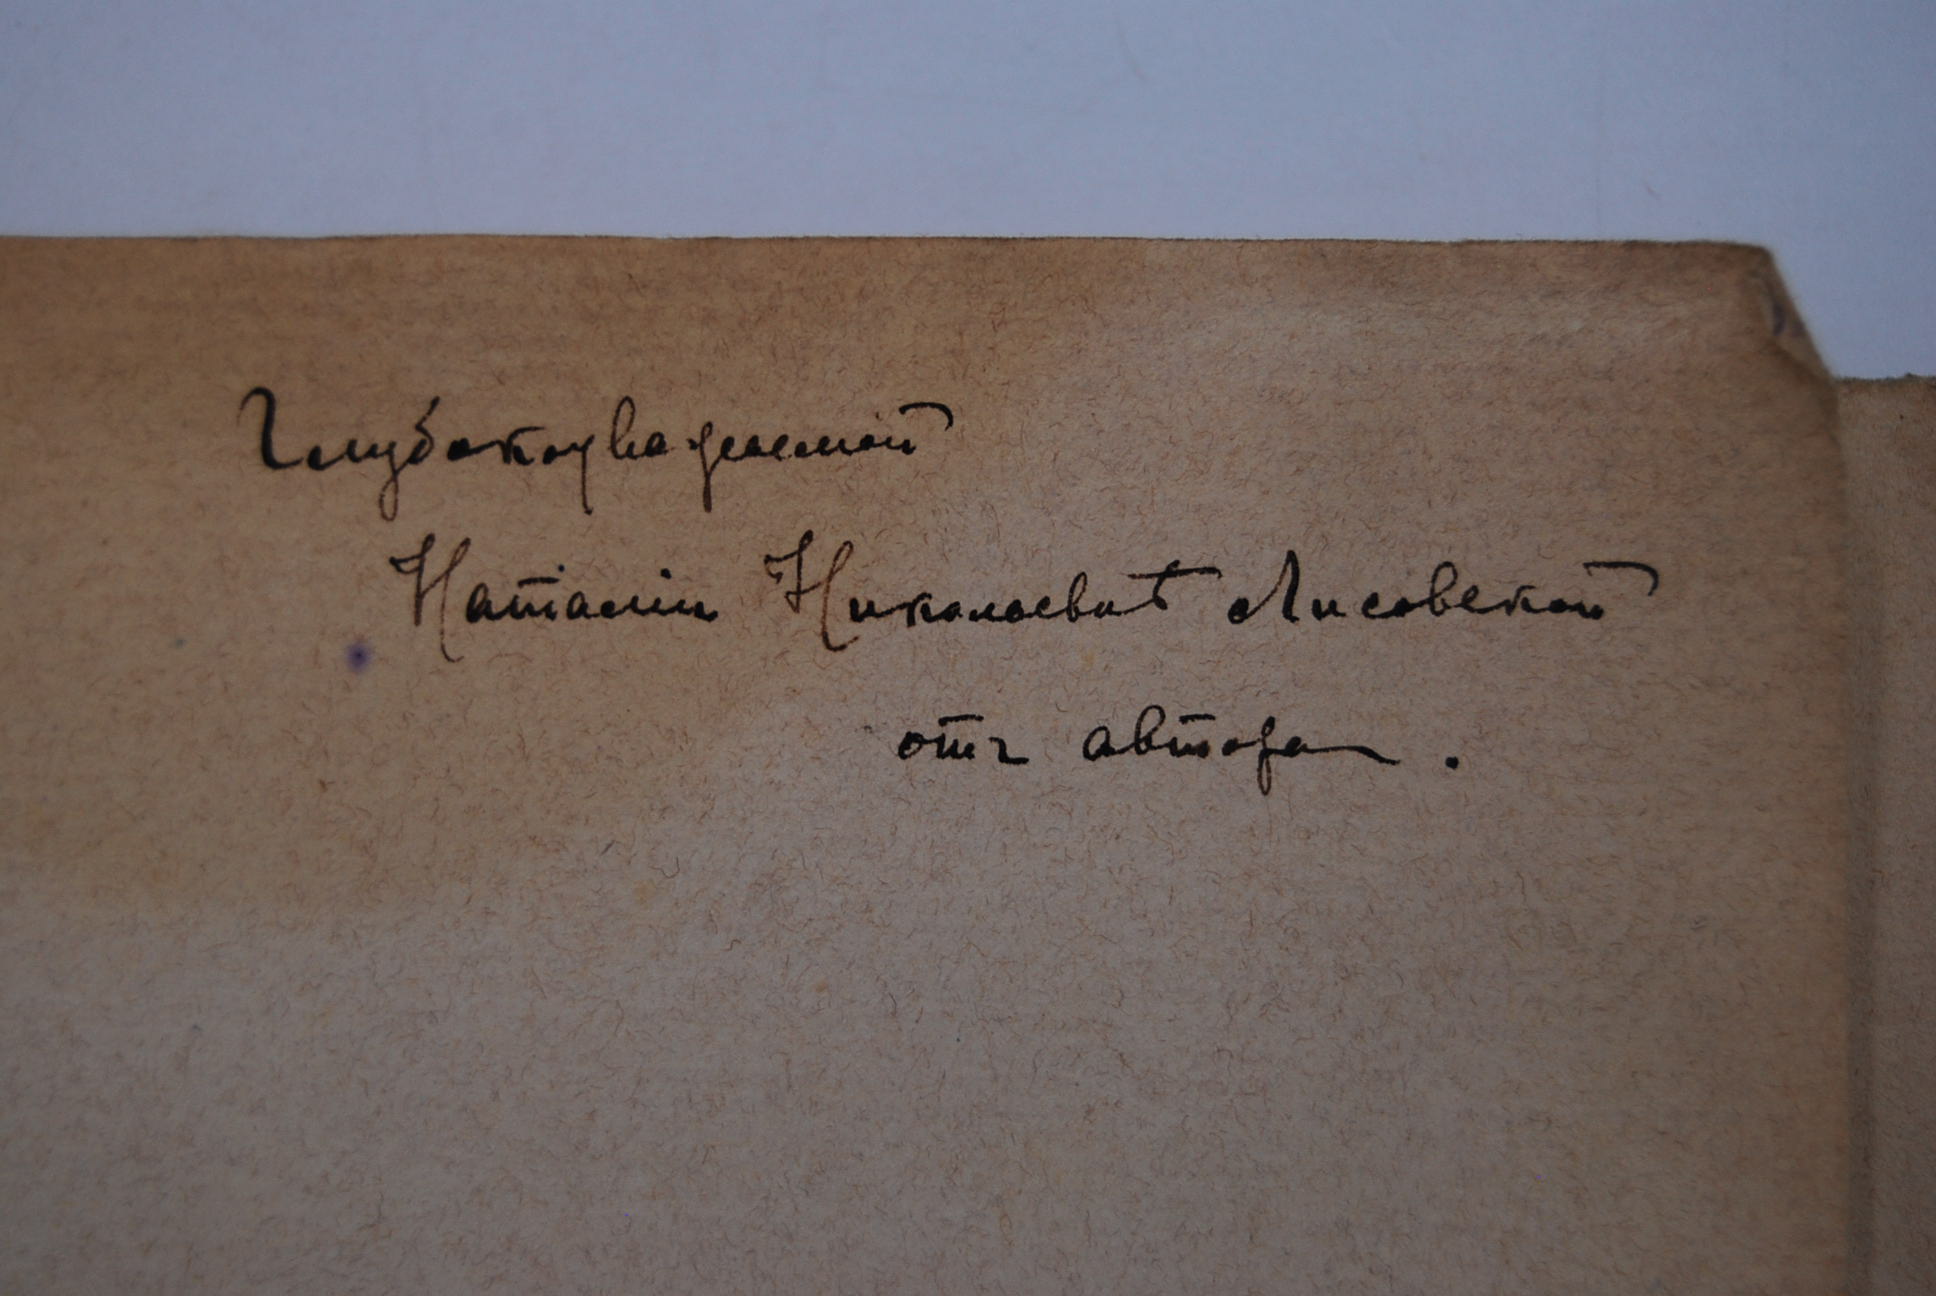 Глубокоуважаемой
Наталіи Николаевнѣ Лисовской
отъ автора.